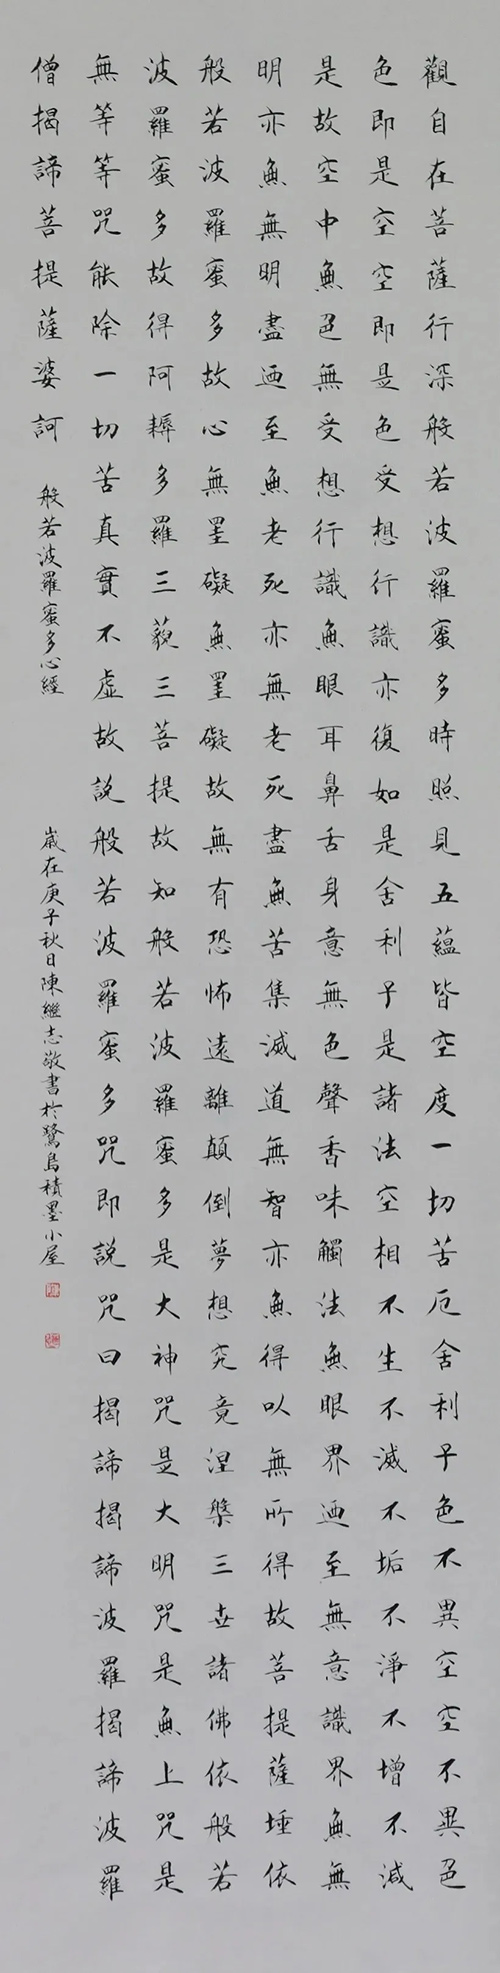 觀自在菩薩行深般若波羅蜜多時照見五蘊皆空度一切苦厄舍利子色不異空空不異色
色即是空空即是色受想行識亦復如是舍利子是諸法空相不生不滅不垢不淨不增不減
是故空中無色無受想行識無眼耳鼻舌身意無色聲香味觸法無眼界迺至無意識界無無
明亦無無明盡迺至無老死亦無老死盡無苦集滅道無智亦無得以無所得故菩提薩埵依
般若波羅蜜多故心無罣礙無罣礙故無有恐怖遠離顛倒夢想究竟涅槃三世諸佛依般若
波羅蜜多故得阿耨多羅三藐三菩提故知般若波羅蜜多是大神咒是大明咒是無上咒是
無等等咒能除一切苦真實不虛故說般若波羅蜜多咒即說咒曰揭諦揭諦波羅揭諦波羅
僧揭諦菩提薩婆訶
般若波羅蜜多心經
歲在庚子秋日陳繼志敬書於鷺島積墨小屋